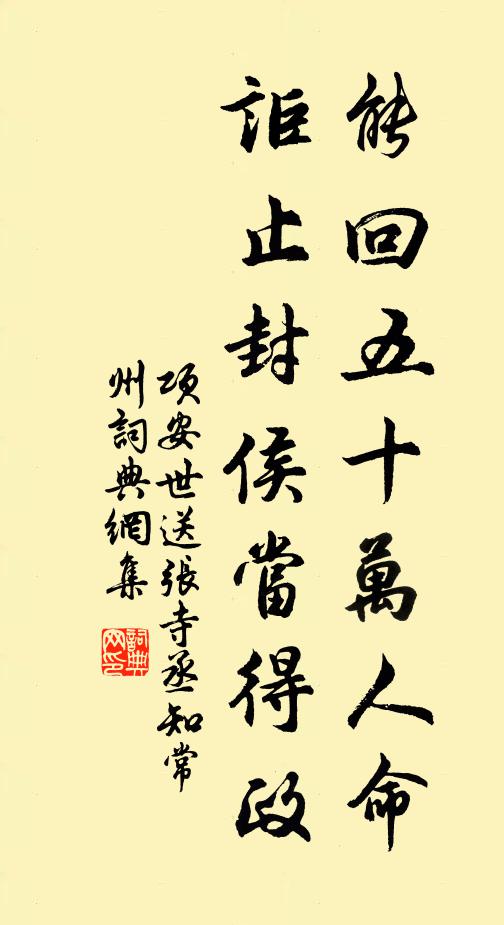 能回五十萬人命
詎止封侯當得政
項安世送張寺丞知常
州詞典網集
詞典
网印